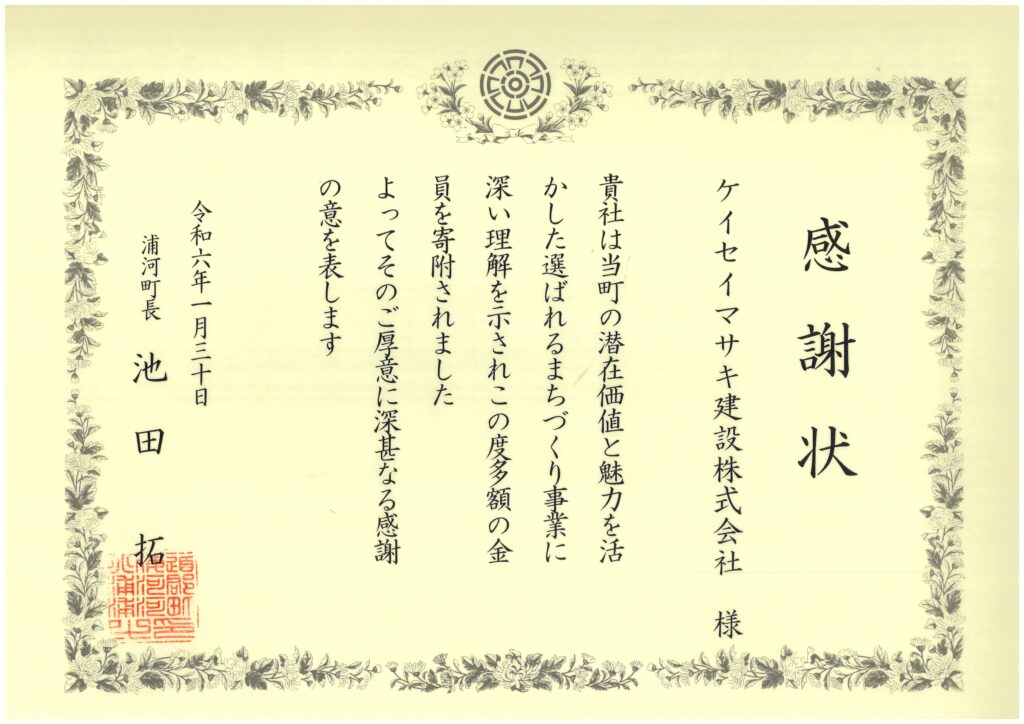 感謝状
ケイセイマサキ建設株式会社 様
貴社は当町の潜在価値と魅力を活
かした選ばれるまちづくり事業に
深い理解を示されこの度多額の金
員を寄附されました
よってそのご厚意に深甚なる感謝
の意を表します
令和六年一月三十日
浦河町長 池田 拓